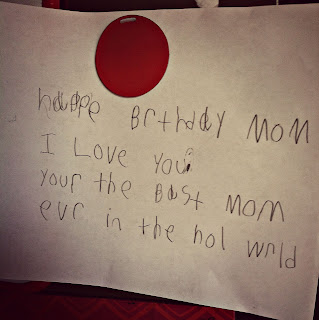 happe Brthday MOM
I Love You
your the Bast MOM
evr in the hol wrld